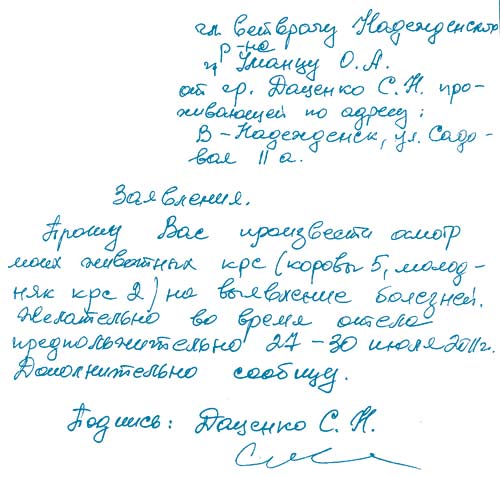 гл. ветврачу Надежденского
р-на
гр Уманцу О.А.
от гр. Даценко С.Н. про-
живающей по адресу:
В-Надежденск, ул. Садо-
вая 11 а.
Заявления.
Прошу Вас произвести осмотр
моих животных крс (коровы 5, молод-
няк крс 2) на выявление болезней.
Желательно во время отела
предположительно 27-30 июля 2011г.
Дополнительно сообщу.
Подпись: Даценко С. Н.